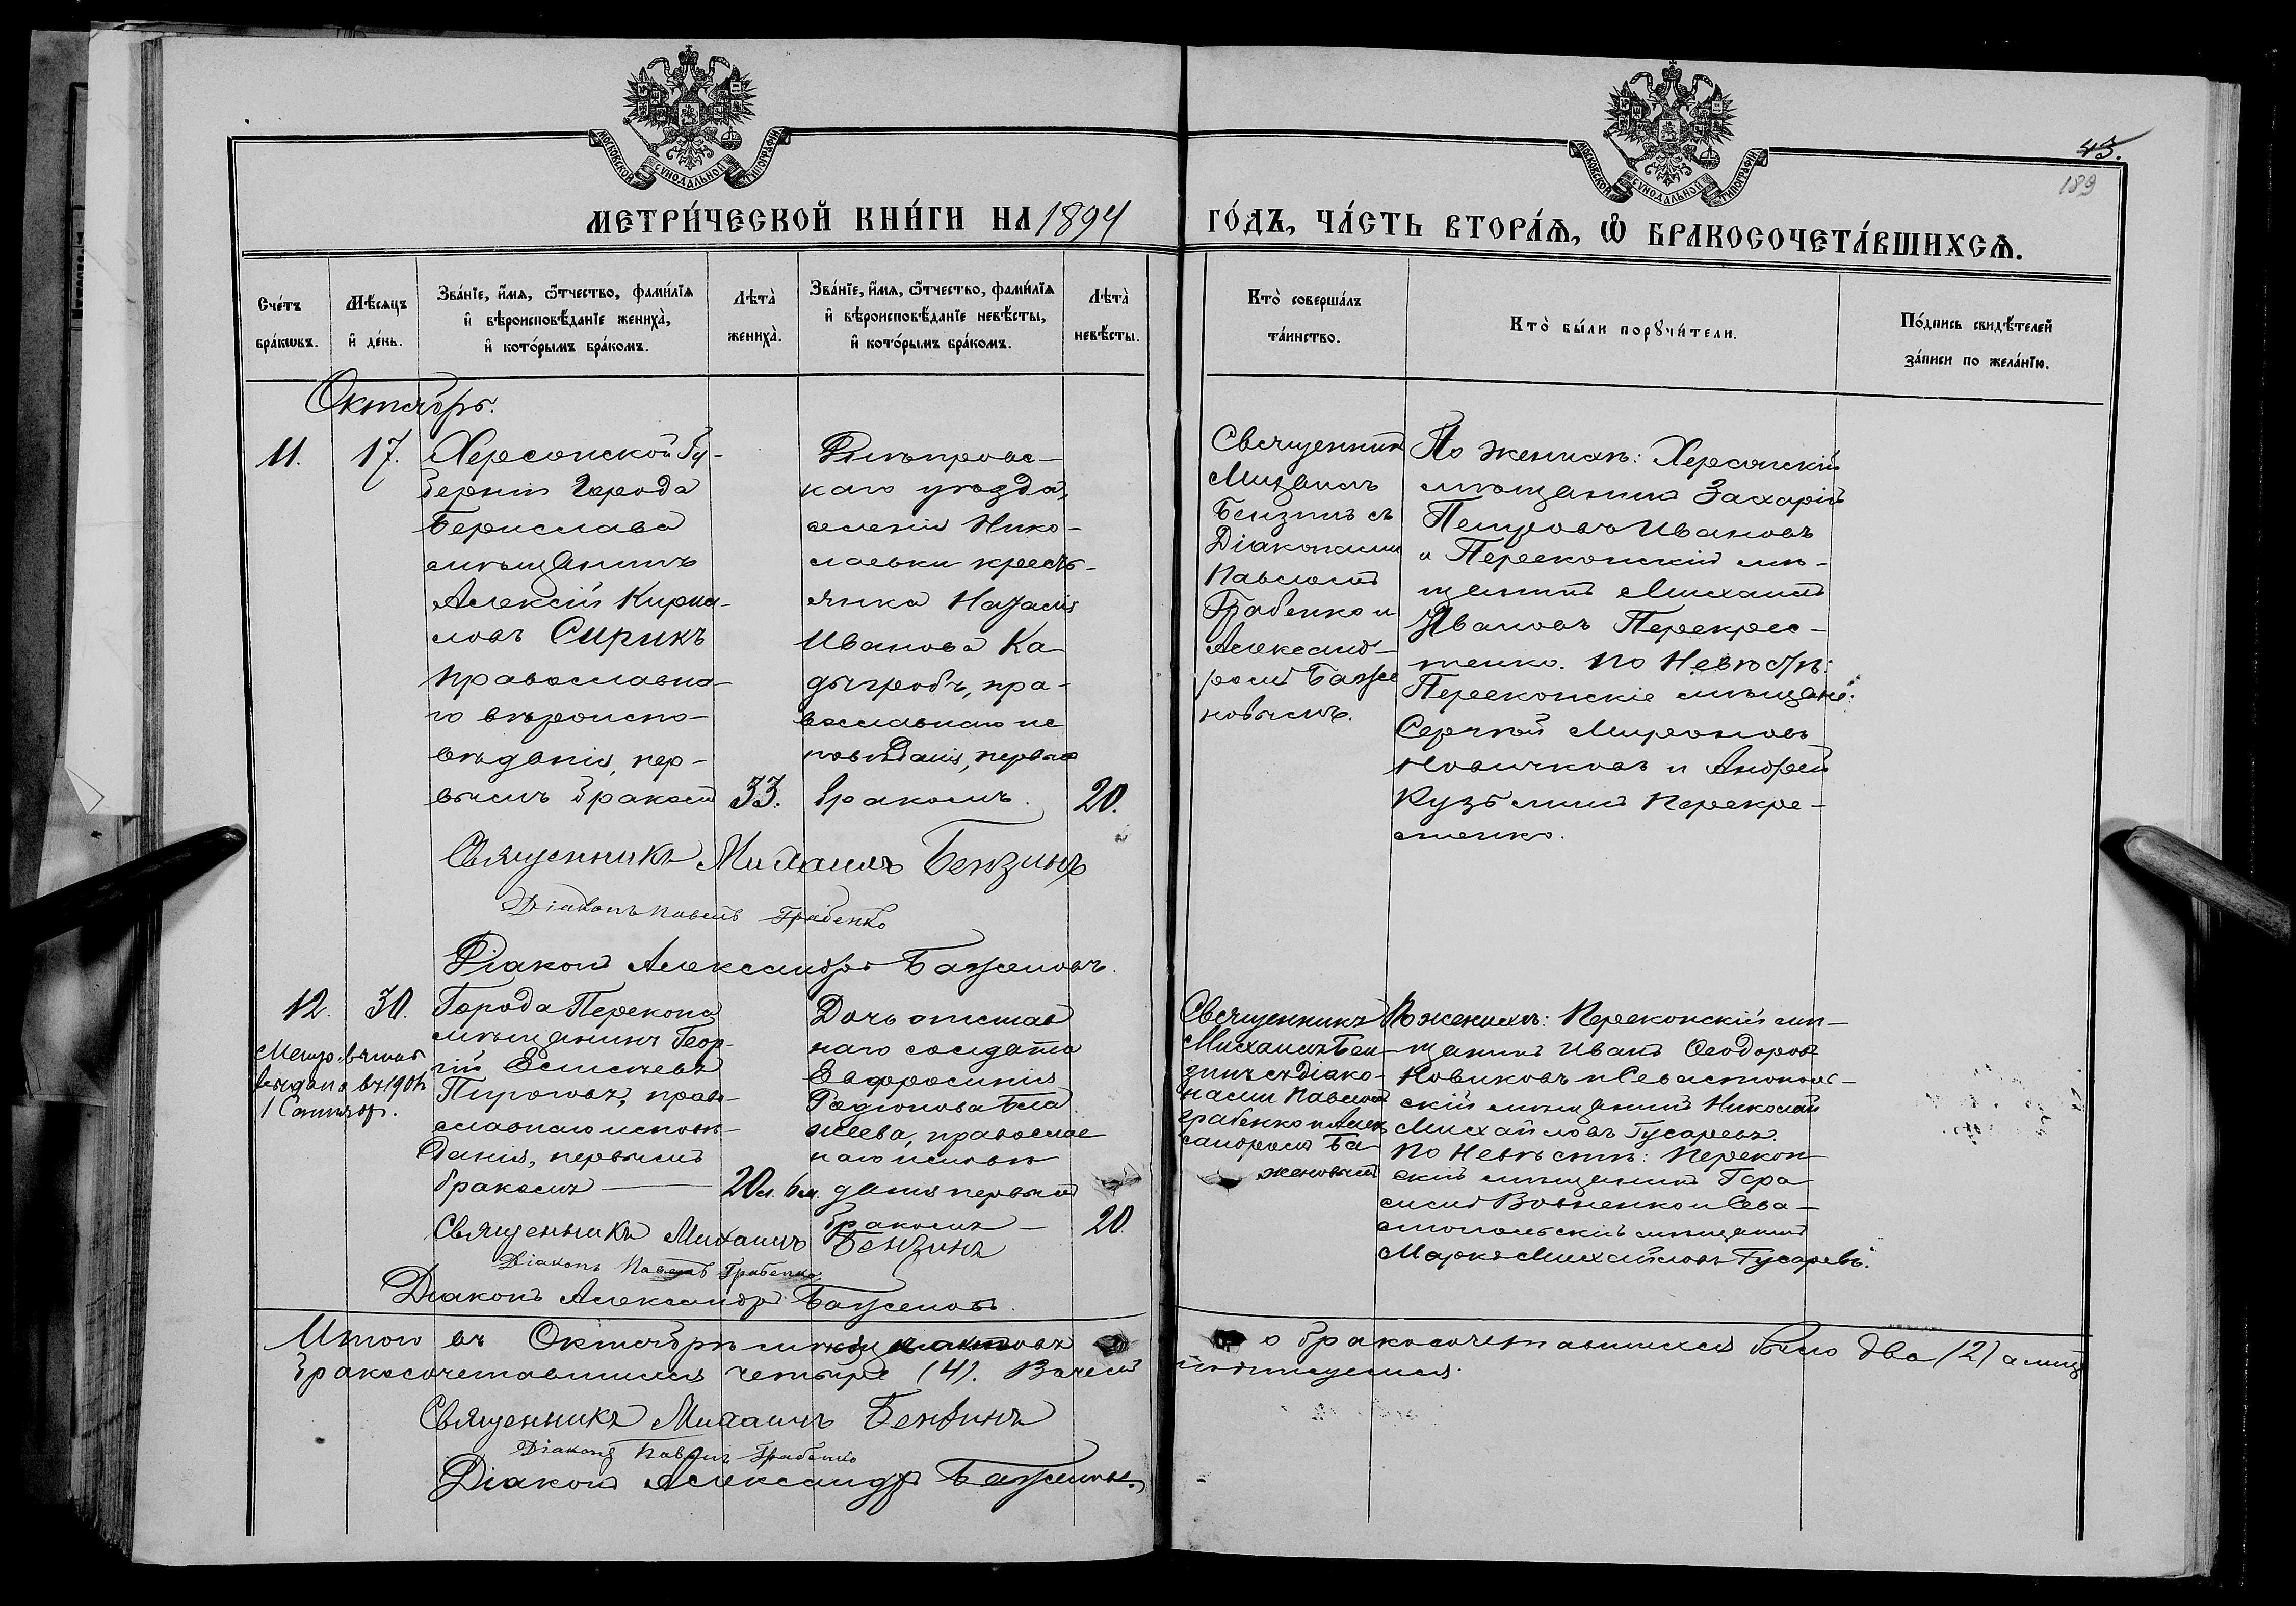 МОСКОВСКОЙ СУНОДАЛЬНОЙ ТИПОГРАФІИ
МОСКОВСКОЙ СУНОДАЛЬНОЙ ТИПОГРАФІИ
43.
189
МЕТРИ́ЧЕСКОЙ КНИ́ГИ НА 1894 ГО́ДЪ, ЧА́СТЬ ВТОРА́Ѧ, Ѽ БРАКОСОЧЕТА́ВШИХСѦ.
Сче́тъ бра́кѡвъ.
Мѣ́сяцъ и҆ де́нь.
Зва́нїе, и҆́мѧ, ѻ҆́тчество, фами́лїѧ
и҆ вѣроисповѣ́данїе жениха̀,
и҆ кото́рымъ бра́комъ.
Лѣта̀ жениха̀.
Зва́нїе, и҆́мѧ, ѻ҆́тчество, фами́лїѧ
и҆ вѣроисповѣ́данїе невѣ́сты,
и҆ кото́рымъ бра́комъ.
Лѣта̀ невѣ́сты.
Кто̀ соверша́лъ
та́инство.
Кто̀ бы́ли порꙋчи́тели.
По́дпись свидѣ́телей
за́писи по жела́нїю.
Октябрь.
11.
17.
Херсонской Гу-
берніи Города
Берислава
мѣщанинъ
Алексій Кирил-
ловъ Сирикъ
православна-
го вѣроиспо-
вѣданія, пер-
вымъ бракомъ
33.
Днѣпровс-
каго уѣзда,
селенія Нико-
лаевки кресть-
янка Наталія
Иванова Ка
дыгробъ, пра-
вославнаго ис
повѣданія, первымъ
бракомъ.
20.
Священникъ
Михаилъ
Бензинъ съ
Діаконами
Павломъ
Грабенко и
Александ-
ромъ Баже
новымъ.
По женихѣ: Херсонскій
мѣщанинъ Захарій
Петровъ Ивановъ
и Перекопскій мѣ-
щанинъ Михаилъ
Ивановъ Перекрес-
тенко. По Невѣстѣ:
Перекопскіе мѣщане:
Сергѣй Мироновъ
Новичковъ и Андрей
Кузьминъ Перекре-
стенко.
Священникъ Михаилъ Бензинъ
Діаконъ Павелъ Грабенко
Діаконъ Александръ Баженовъ.
12.
30.
Метр. выпись
выдана въ 190
1 Сентябр.
Города Перекопа
мѣщанинъ Геор-
гій
Пироговъ, право-
славнаго исповѣ-
данія, первымъ
бракомъ
20 л. 6 м.
Дочь отстав
наго солдата
Евфросинія
Родіонова
православ
наго исповѣ
данія первымъ
бракомъ
20.
Священникъ
Михаилъ Бен-
зинъ съ діако-
нами Павломъ
Грабенко и Алек
сандромъ Ба-
женовымъ
По женихѣ: Перекопскій мѣ-
щанинъ Иванъ Ѳеодоровъ
Новиковъ и Севастополь-
скій мѣщанинъ Николай
Михайловъ Гусаревъ.
По Невѣстѣ: Перекоп-
скій мѣщанинъ Гера
симъ Вовненко и Сева-
стопольскій мѣщанинъ
Марко Михайловъ Гусаревъ.
Священникъ Михаилъ Бензинъ
Діаконъ Павелъ Грабенко
Діаконъ Александръ Баженовъ.
Итого въ Октябрѣ мѣсяцѣ актовъ о бракосочетавшихся было два (2) а лицъ
бракосочетавшихся четыре (4). Въ чемъ подписуемся.
Священникъ Михаилъ Бензинъ
Діаконъ Павелъ Грабенко
Діаконъ Александръ Баженовъ.